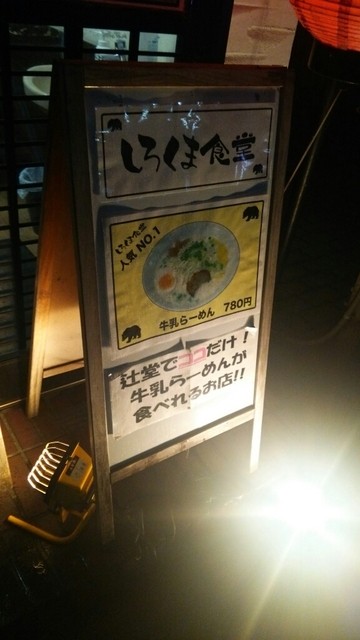 しろくま食堂
しろくま食堂
人気NO.1
牛乳らーめん 780円
辻堂でココだけ！
牛乳らーめんが
食べれるお店!!